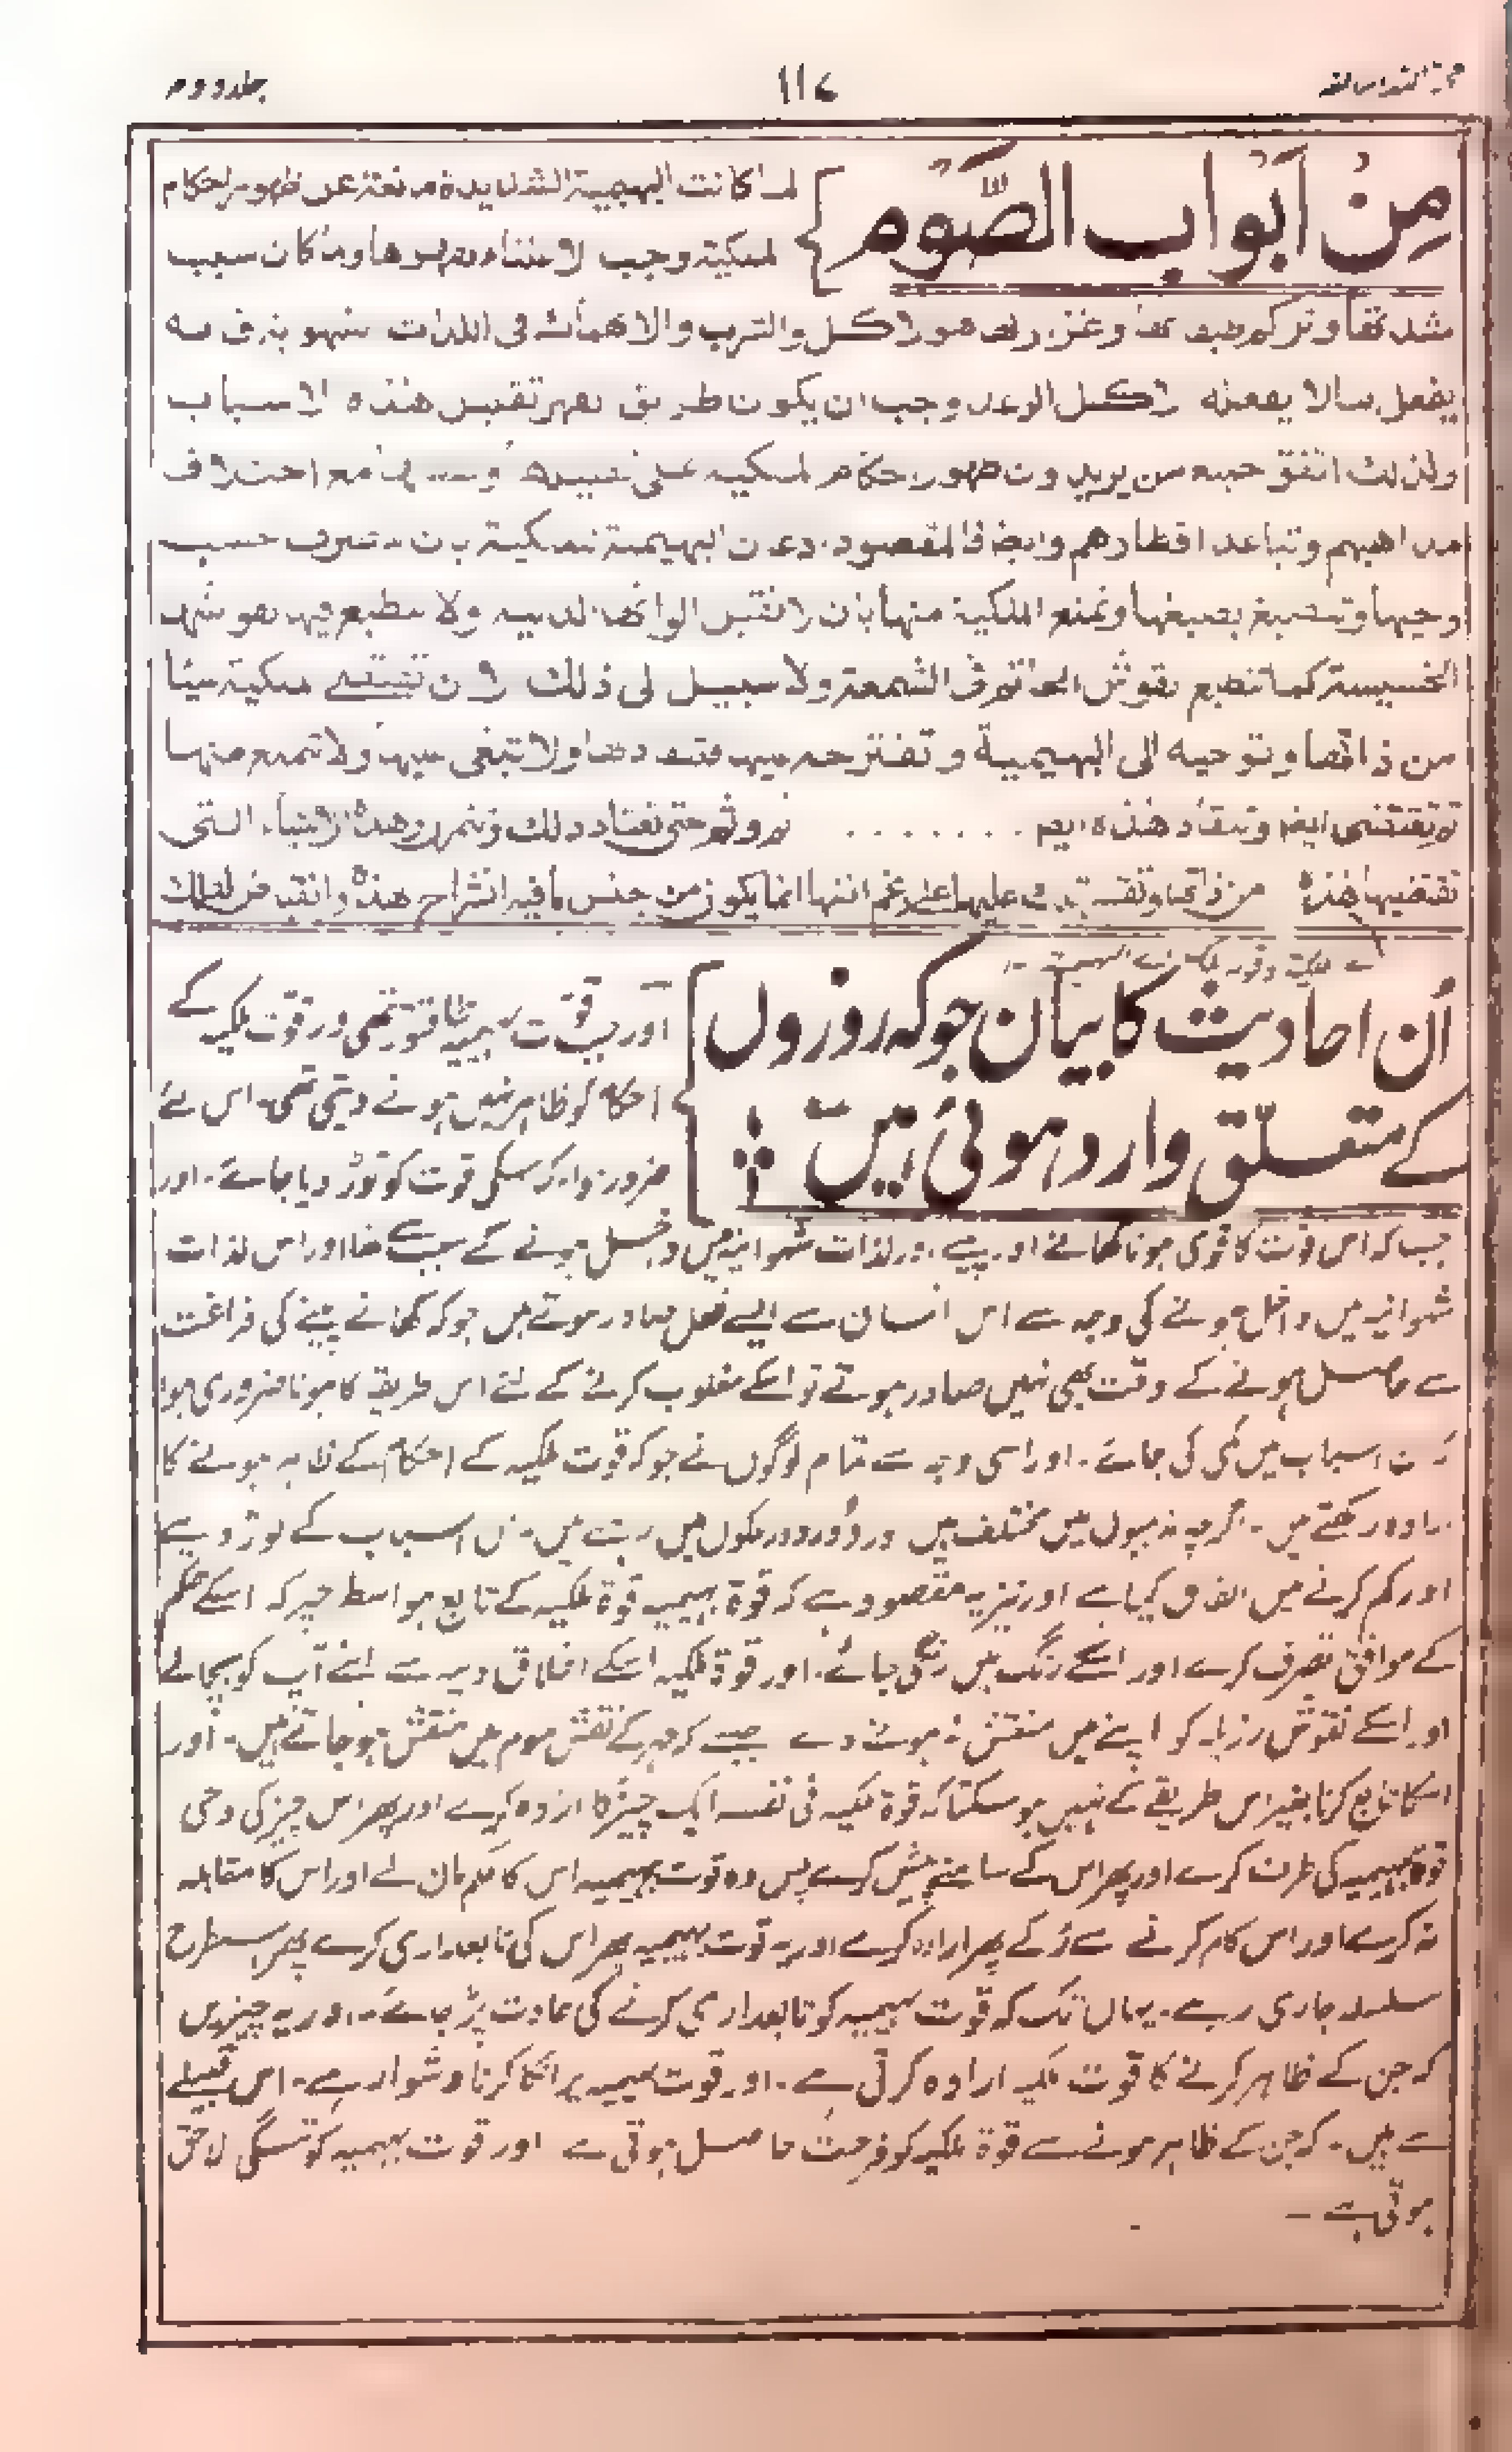 جلد دوم
۱۱۷
حجۃ اللہ البالغہ
مِنْ اَبْوَاب الصَّوْم
لما كانت البهيمية الشديدة مانعة عن ظهور احكام
الملكية وجب الاعتناء بقهرها ولما كان سبب
شدتها وتراكم طبقاتها وغزارتها هو الاكل والشرب والانهماك فى اللذات الشهوية فانه
يفعل مالا يفعله الاكل الرغد وجب ان يكون طريق القهر تقليل هذه الاسباب
ولذلك اتفق جميع من يريدون ظهور احكام الملكية على تقليلها مع اختلاف
مذاهبهم وتباعد اقطارهم وايضا فالمقصود اذعان البهيمية للملكية بان تتصرف حسب
وحيها وتنصبغ بصبغها وتمنع الملكية منها بان لا تقبل الوانها الدنية ولا تنطبع فيها نقوشها
الخسيسة كما تنطبع نقوش الخاتم فى الشمعة ولا سبيل الى ذلك الا ان تقتضى الملكية شيئا
من ذاتها وتوحيه الى البهيمية وتقترحه عليها فتنقاد لها ولا تبغى عليها ولا تتمنع منها
ثم تقتضى ايضا وتنقاد هذه ايضا . . . . . . . ثم وثم حتى تعتاد ذلك وتتمرن وهذه الاشياء التى
تقتضيها هذه من ذاتها وتقسر تلك عليها على رغم انفها انما يكون من جنس ما فيه انشراح هذه وانقباض لتلك
اُن احادیث کا بیان جو کہ روزوں
کے متعلّق وارد ہوئی ہیں
اور جب قوت بہیمیہ طاقتور تھی اور قوت ملکیہ کے
احکام کو ظاہر نہیں ہونے دیتی تھی۔ اس لئے
ضرور ہوا۔ کہ اسکی قوت کو توڑ دیا جائے۔ اور
جب کہ اس قوت کا قوی ہونا کھانے اور پینے۔ اور لذات شہوانیہ میں داخل ہونے کے سبب سے تھا اور اس لذات
شہوانیہ میں داخل ہونے کی وجہ سے اس انسان سے ایسے فعل صادر ہوتے ہیں جو کہ کھانے پینے کی فراغت
سے حاصل ہونے کے وقت بھی نہیں صادر ہوتے تو اسکے مغلوب کرنے کے لئے اس طریقے کا ہونا ضروری ہوا
کہ ان اسباب میں کمی کی جائے۔ اور اسی وجہ سے تمام لوگوں نے جو کہ قوت ملکیہ کے احکام کے ظاہر ہونے کا
ارادہ رکھتے ہیں۔ اگرچہ مذہبوں میں مختلف ہیں اور دُور دُور ملکوں میں رہتے ہیں۔ ان اسباب کے توڑ دینے
اور کم کرنے میں اتفاق کیا ہے اور نیز یہ مقصود ہے کہ قوۃ بہیمیہ قوۃ ملکیہ کے تابع ہو اسطرح پر کہ اسکے حکم
کے موافق تصرف کرے اور اسکے رنگ میں رنگی جائے۔ اور قوۃ ملکیہ اسکے اخلاق دنیہ سے اپنے آپ کو بچالے
اور اسکے نقوش رزیلہ کو اپنے میں منتقش نہ ہونے دے جیسے کہ مہر کے نقش موم میں منتقش ہو جاتے ہیں۔ اور
اسکا تابع کرنا بغیر اس طریقے کے نہیں ہو سکتا کہ قوۃ ملکیہ فی نفسہ ایک چیز کا ارادہ کرے اور پھر اس چیز کی وحی
قوۃ بہیمیہ کی طرف کرے اور پھر اس کے سامنے پیش کرے پس وہ قوت بہیمیہ اس کا حکم مان لے اور اس کا مقابلہ
نہ کرے اور اس کام کرنے سے نہ رُکے پھر ارادہ کرے اور یہ قوت بہیمیہ پھر اس کی تابعداری کرے پھر اسطرح
سلسلہ جاری رہے۔ یہاں تک کہ قوت بہیمیہ کو تابعداری کرنے کی عادت پڑ جائے۔ اور یہ چیزیں
کہ جن کے ظاہر کرنے کا قوت ملکیہ ارادہ کرتی ہے۔ اور قوت بہیمیہ پر انکا کرنا دشوار ہے۔ اس قبیلے
سے ہیں۔ کہ جن کے ظاہر ہونے سے قوۃ ملکیہ کو فرحت حاصل ہوتی ہے اور قوت بہیمیہ کو تنگی لاحق
ہوتی ہے ـ